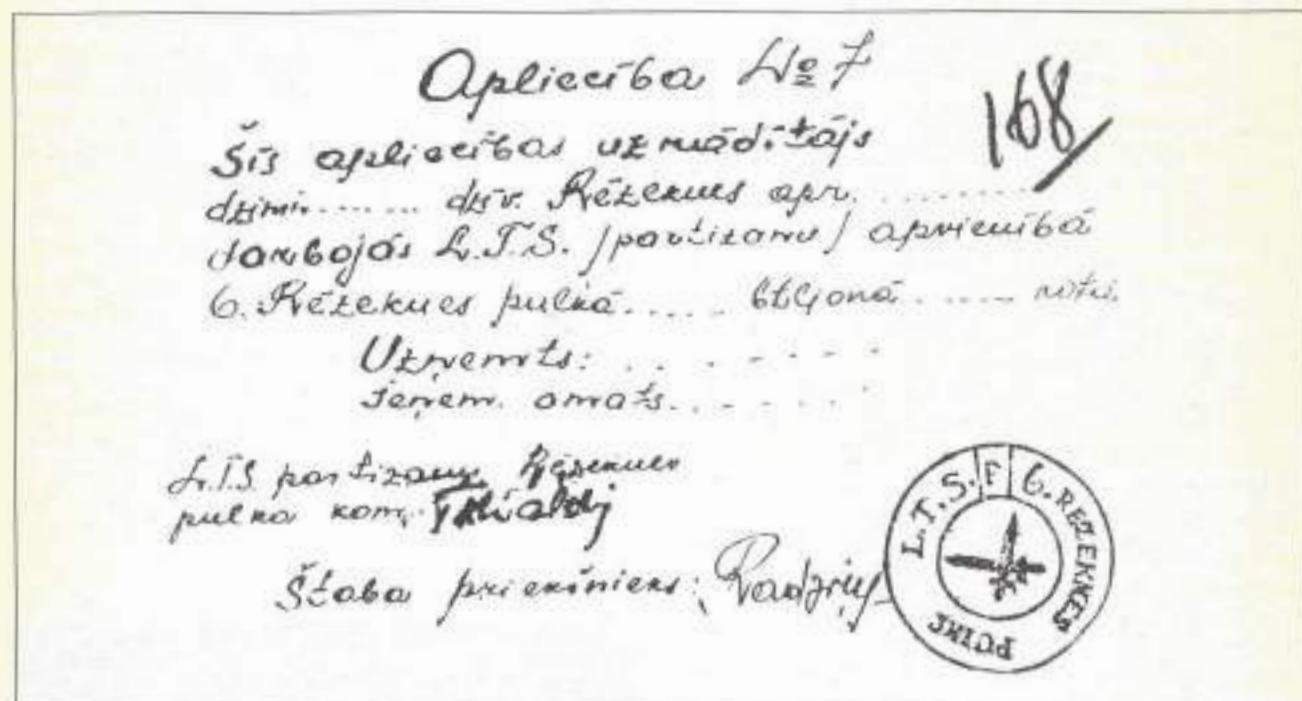 Apliecība № 7
168
Šīs apliecības uzrādītājs
dzimis ........ dzīv. Rēzeknes apr. ..........
darbojās L.T.S. /partizanu/ apvienībā
6. Rēzeknes pulkā ..... btljonā ..... rotā.
Uzņemts: . . - - - - -
Ieņem. amats. - - - - - -
L.T.S. partizanu Rēzeknes
pulka kom.
Štaba priekšnieks:
L.T.S./P/ 6. REZEKNES
PULKS